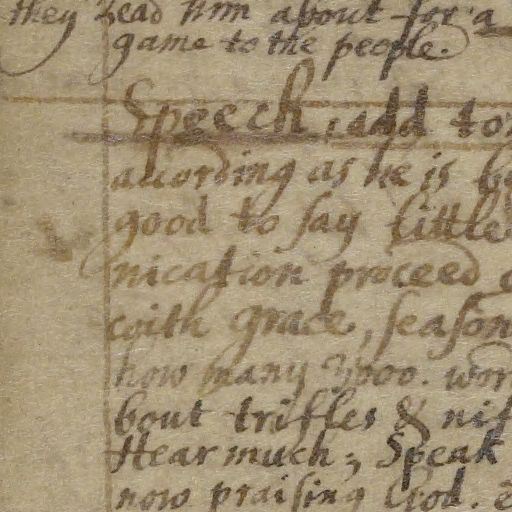 they Lead him about for a
game to the people.
Speech, add to
acording as he is be
good to say little
nication proceed o
with grace, season
how many 3000. wor
bout trifles & nif
Hear much; Speak
now praising God.